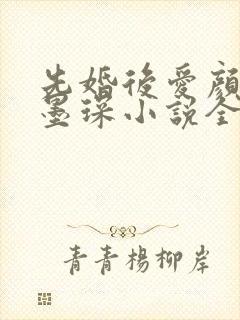 先婚後愛顏
墨琛小說全
青青楊柳岸